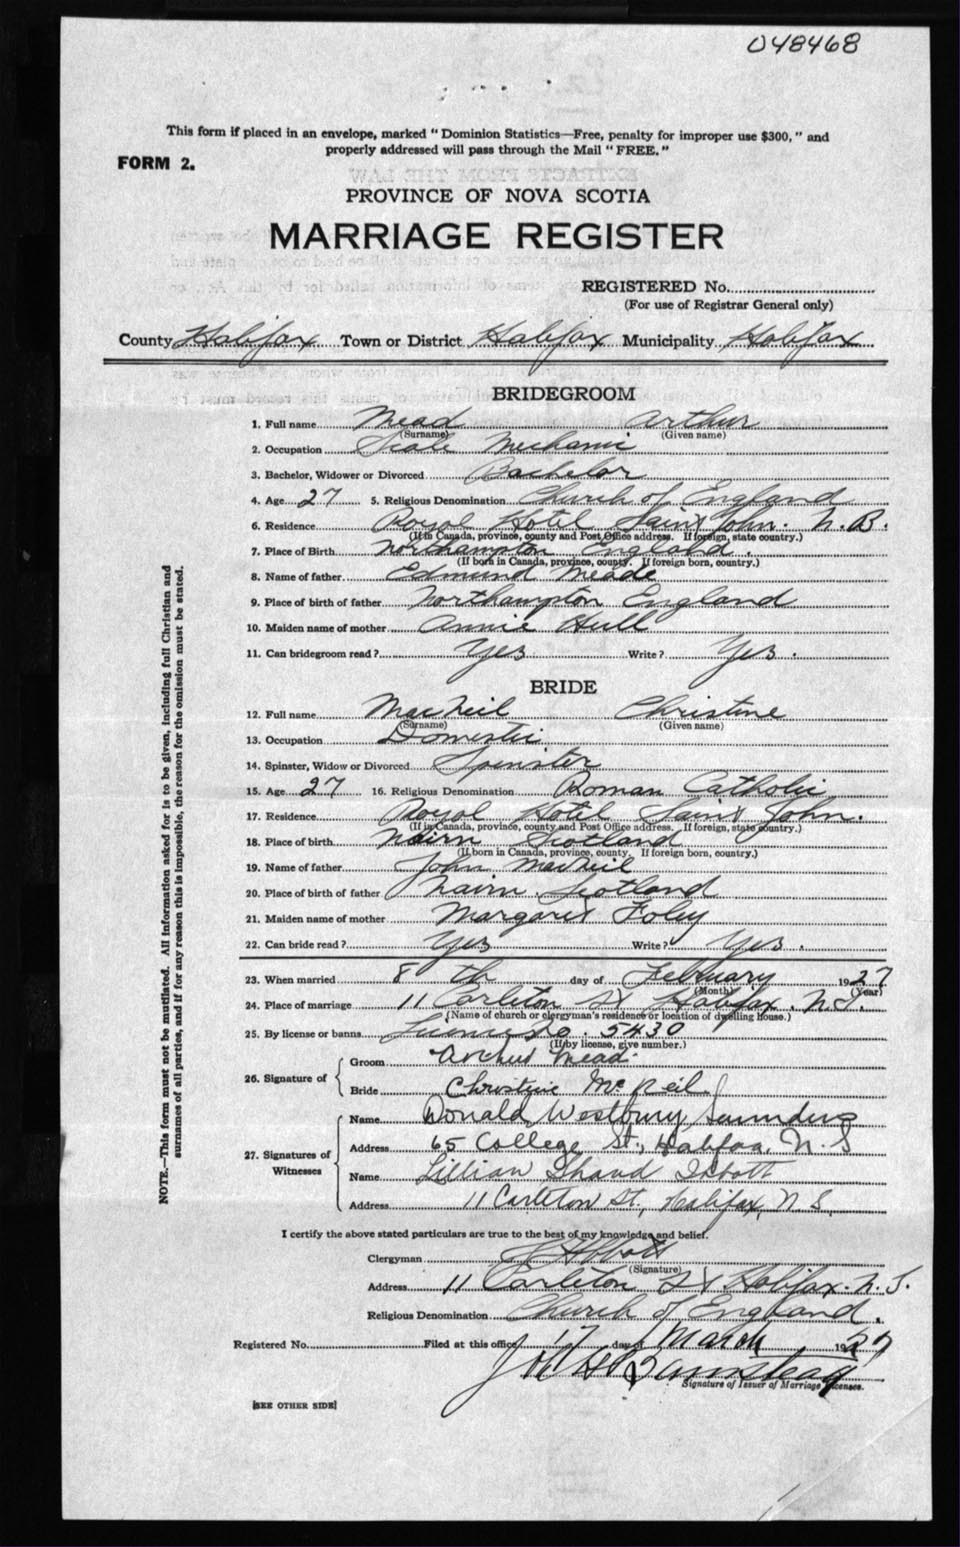 048468
This form if placed in an envelope, marked "Dominion Statistics—Free, penalty for improper use $300," and
properly addressed will pass through the Mail "FREE."
FORM 2.
PROVINCE OF NOVA SCOTIA
MARRIAGE REGISTER
REGISTERED No.
(For use of Registrar General only)
County Halifax Town or District Halifax Municipality Halifax
BRIDEGROOM
1. Full name Mead Arthur
(Surname) (Given name)
2. Occupation Scale Mechanic
3. Bachelor, Widower or Divorced Bachelor
4. Age 27 5. Religious Denomination Church of England
6. Residence Royal Hotel Saint John. N.B.
(If in Canada, province, county and Post Office address. If foreign, state country.)
7. Place of Birth Northampton England.
(If born in Canada, province, county. If foreign born, country.)
8. Name of father Edmund Meade
9. Place of birth of father Northampton England
10. Maiden name of mother Annie Hull
11. Can bridegroom read? Yes Write? Yes.
BRIDE
12. Full name MacNeil Christine
(Surname) (Given name)
13. Occupation Domestic
14. Spinster, Widow or Divorced Spinster
15. Age 27 16. Religious Denomination Roman Catholic
17. Residence Royal Hotel Saint John.
(If in Canada, province, county and Post Office address. If foreign, state country.)
18. Place of birth Nairn Scotland
(If born in Canada, province, county. If foreign born, country.)
19. Name of father John MacNeil
20. Place of birth of father Nairn Scotland
21. Maiden name of mother Margaret Foley
22. Can bride read? Yes Write? Yes.
23. When married 8th day of February 1927
(Month) (Year)
24. Place of marriage 11 Carleton St Halifax. N.S.
(Name of church or clergyman's residence or location of dwelling house.)
25. By license or banns License No. 5430
(If by license, give number.)
26. Signature of
Groom Arthur Mead
Bride Christine McNeil
27. Signatures of Witnesses
Name Donald Westbury Saunders
Address 65 College St., Halifax, N.S
Name Lillian Abbott
Address 11 Carleton St., Halifax, N.S.
I certify the above stated particulars are true to the best of my knowledge and belief.
Clergyman Abbott
(Signature)
Address 11 Carleton St Halifax. N.S.
Religious Denomination Church of England.
Registered No. Filed at this office 17 day of March 1927
Signature of Issuer of Marriage Licenses.
[SEE OTHER SIDE]
NOTE.—This form must not be mutilated. All information asked for is to be given, including full Christian and
surnames of all parties, and if for any reason this is impossible, the reason for the omission must be stated.